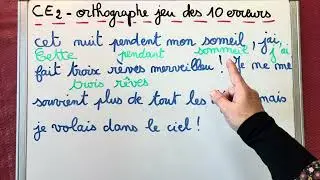 CE2 - orthographe jeu des 10 erreurs
cet nuit pendent mon someil, jai,
Cette pendant sommeil j'ai
fait troix rèves merveilleu ! Je me
trois rêves
souvient plus de tout les mais
je volais dans le ciel !